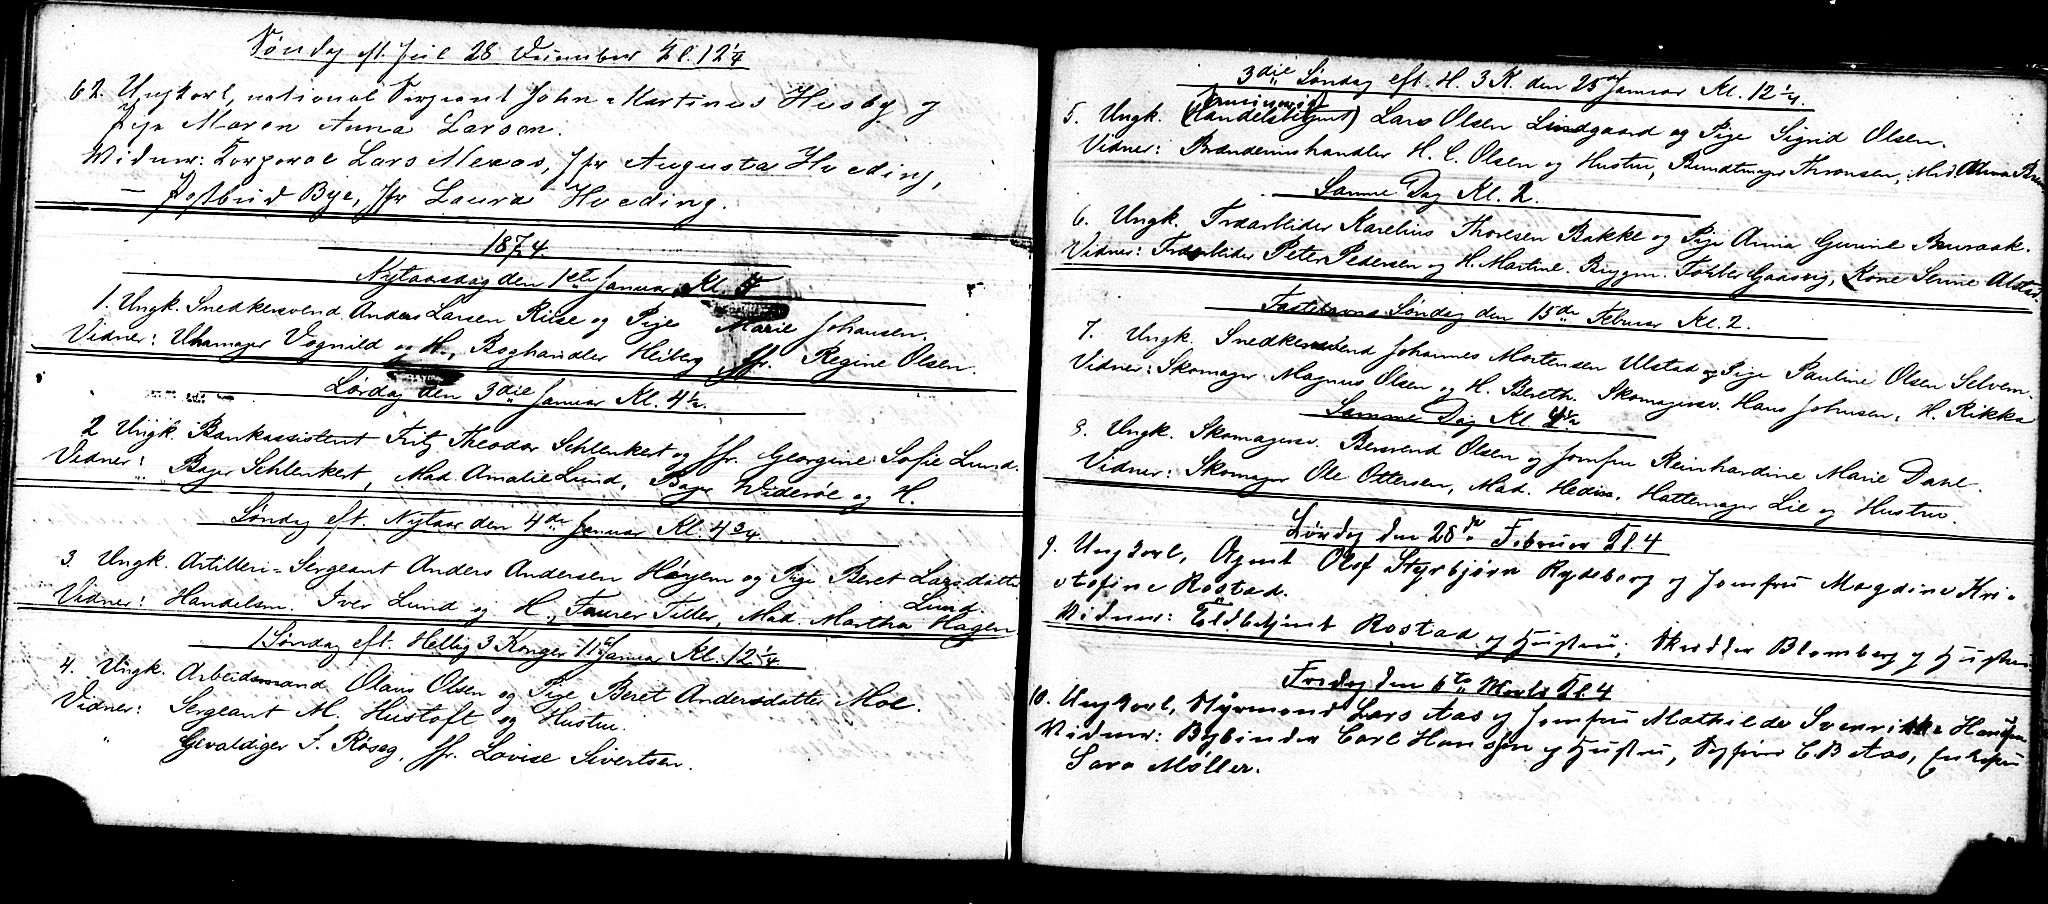 Søndag eft. Jul 28 December Kl. 12 1/4
62. Ungkarl, national Sergeant John Martinus Husby og
Pige Maren Anna Larsen.
Vidner: Corporal Lars Mexas, Jfr Augusta Hveding,
— Postbud Bye, Jfr Laura Hveding.
1874.
Nytaarsdag den 1ste Januar, Kl.
1. Ungk. Snedkersvend Anders Larsen Riise og Pige Marie Johansen.
Vidner: Uhrmager Vognild og H., Boghandler Heiberg Jfr. Regine Olsen.
Lørdag den 3die Januar Kl. 4 1/2.
2 Ungk. Bankassistent Fritz Theodor Schlenkert og Jfr. Georgine Sofie Lund.
Vidner: Bager Schlenkert, Mad. Amalie Lund, Bager Widerøe og H.
Søndag eft. Nytaar den 4de Januar Kl. 4 3/4.
3. Ungk. Artilleri-Sergeant Anders Andersen Høyem og Pige Beret Larsdatter
Lund.
Vidner: Handelsm. Iver Lund og H., Faurer Tiller, Mad. Martha Hagen
1 Søndag eft. Hellig 3 Konger 11te Januar Kl. 12 1/4
4. Ungk. Arbeidsmand Olaus Olsen og Pige Beret Andersdatter Moe.
Vidner: Sergeant M. Hustoft og Hustru.
" Gevaldiger S. Røseg, Jfr. Lovise Sivertsen.
3die Søndag eft. H. 3 K. den 25de Januar Kl. 12 1/4.
5. Ungk. (Handelsbetjent) Lars Olsen Lindgaard og Pige Sigrid Olsen.
Vidner: Brændevinshandler H. C. Olsen og Hustru, Bundtmager Thronsen, Mad. Olava
Samme Dag Kl. 2.
6. Ungk. Træarbeider Karelius Thoresen Bakke og Pige Anna Gurine
Vidner: Træarbeider Peter Pedersen og H. Martine. Bryggm. Tobber Gaasvig, Kone Serine Alstad.
Fastelavns Søndag den 15de Februar Kl. 2.
7. Ungk. Snedkersvend Johannes Mortensen Ulstad og Pige Pauline Olsen Selvem.
Vidner: Skomager Magnus Olsen og H. Bereth. Skomagersv. Hans Johnsen, H. Rikka
Samme Dag Kl. 4 1/2
8. Ungk. Skomagersv. Berend Olsen og Jomfru Reinhardine Marie Dahl.
Vidner: Skomager Ole Ottersen, Mad. Hedin, Hattemager Lie og Hustru.
Lørdag den 28de Februar Kl. 4
9. Ungkarl, Agent Olof Styrbjørn Rydeberg og Jomfru Magdine Kri-
stofine Rostad.
Vidner: Toldbetjent Rostad og Hustru; Skrædder Blomberg og Hustru
Fredag den 6te Marts Kl. 4
10. Ungkarl, Styrmand Lars Aas og Jomfru Mathilde Hansen
Vidner: Bybinder Carl Hansen og Hustru, Skipper C B Aas, Enkefru
Sara Møller.